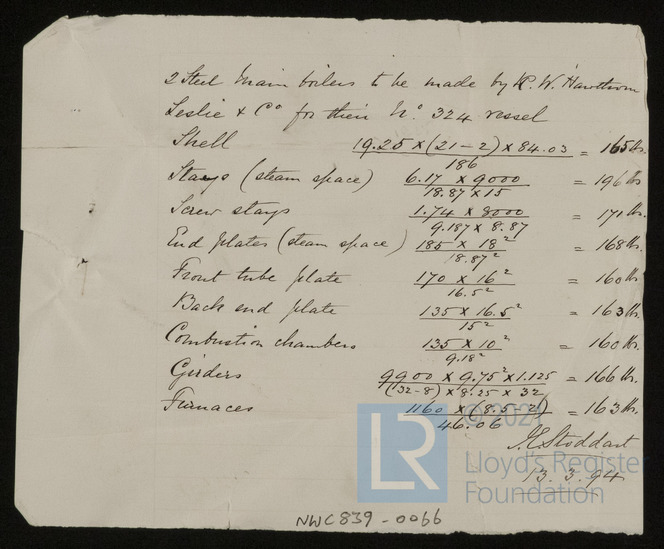 2 Steel main boilers to be made by R. W. Hawthorn
Leslie & Co for their No. 324 vessel
Shell 19.25 × (21 - 2) × 84.03 / 186 = 165 lbs.
Stays (steam space) 6.17 × 9000 / 18.87 × 15 = 196 lbs
Screw stays 1.74 × 8000 / 9.187 × 8.87 = 171 lbs.
End plates (steam space) 185 × 18² / 18.87² = 168 lbs.
Front tube plate 170 × 16² / 16.5² = 160 lbs
Back end plate 135 × 16.5² / 15² = 163 lbs.
Combustion chambers 135 × 10² / 9.18² = 160 lbs.
Girders 9900 × 9.75² × 1.125 / (32-8) × 8.25 × 32 = 166 lbs.
Furnaces 1160 × (8.5 - 2) / 46.06 = 163 lbs.
J.E. Stoddart
13.3.94
© 2021
LR Lloyd's Register
Foundation
NWC839-0066